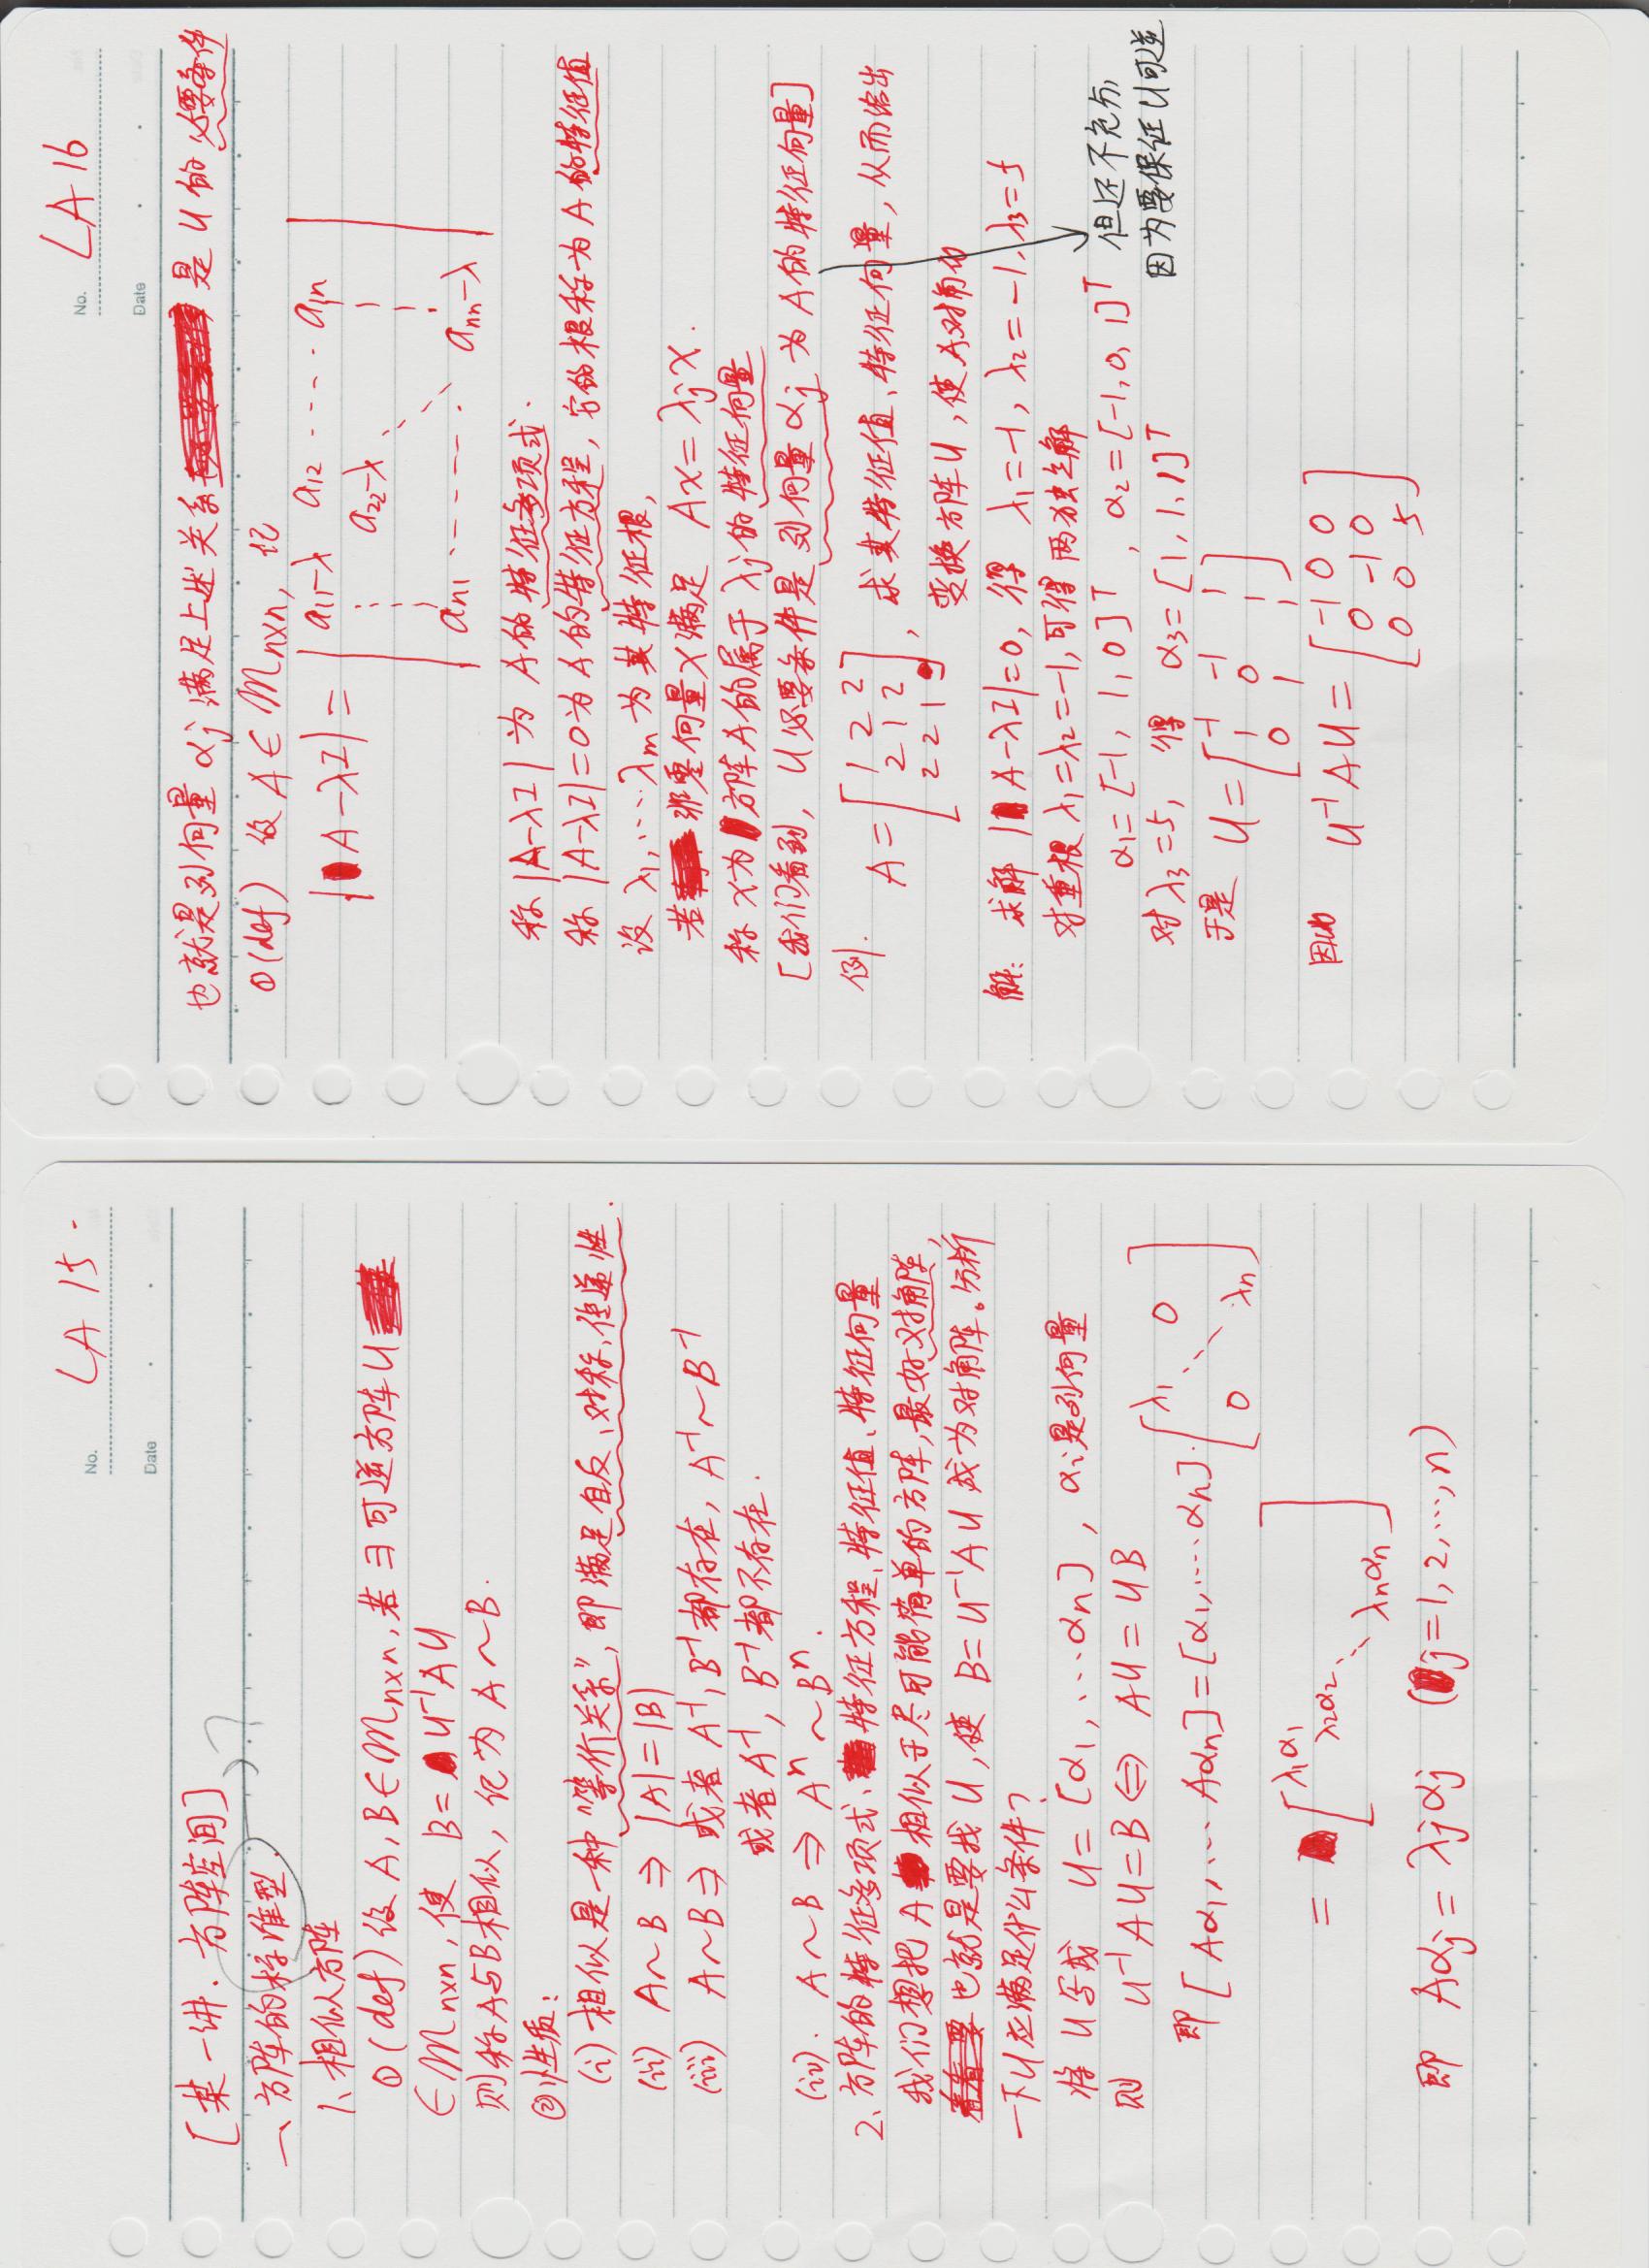 No. LA 15
Date
[某一讲. 方阵空间]
一、方阵的标准型. → ?
1、相似方阵
①(def) 设 A, B ∈ Mn×n, 若 ∃ 可逆方阵 U
∈ Mn×n, 使 B = U⁻¹AU
则称A与B相似, 记为 A ~ B.
②性质:
(i) 相似是一种 "等价关系", 即满足自反、对称、传递性.
(ii) A ~ B ⇒ |A| = |B|
(iii) A ~ B ⇒ 或者 A⁻¹, B⁻¹ 都存在, A⁻¹ ~ B⁻¹
或者 A⁻¹, B⁻¹ 都不存在.
(iv). A ~ B ⇒ Aⁿ ~ Bⁿ.
2、方阵的特征多项式、特征方程、特征值、特征向量
我们想把 A 相似于尽可能简单的方阵, 最好对角阵,
也就是要找 U, 使 B = U⁻¹AU 成为对角阵。分析
一下U应满足什么条件?
将 U 写成 U = [α₁, ... αn], αi是列向量
则 U⁻¹AU = B ⇔ AU = UB
即 [Aα₁, ... Aαn] = [α₁, ... αn]. [λ₁ 0
0 λn]
= [λ₁α₁
λ₂α₂
λnαn]
即 Aαj = λjαj (j = 1, 2, ..., n)
No. LA 16
Date
也就是列向量 αj 满足上述关系 是 U 的 必要条件
①(def) 设 A ∈ Mn×n, 记
|A - λI| = | a₁₁-λ a₁₂ ..... a₁n
a₂₂-λ
an₁ ------ ann-λ |
称 |A-λI| 为 A的特征多项式.
称 |A-λI|=0 为 A 的特征方程, 它的根称为 A 的特征值
设 λ₁, ... λm 为其特征根,
若 非零向量 x 满足 Ax = λjx.
称 x 为 方阵A的属于 λj 的 特征向量
[我们看到, U 必要条件是 列向量 αj 为 A的特征向量]
例. A = [1 2 2
2 1 2
2 2 1], 求其特征值、特征向量, 从而给出
变换方阵U, 使A对角化
解: 求解 |A-λI|=0, 得 λ₁=-1, λ₂=-1, λ₃=5
对重根 λ₁=λ₂=-1, 可得两独立解
α₁ = [-1, 1, 0]ᵀ, α₂ = [-1, 0, 1]ᵀ
但还不充分,
因为要保证U可逆
对 λ₃=5, 得 α₃ = [1, 1, 1]ᵀ
于是 U = [-1 -1 1
1 0 1
0 1 1]
因此 U⁻¹AU = [-1 0 0
0 -1 0
0 0 5]